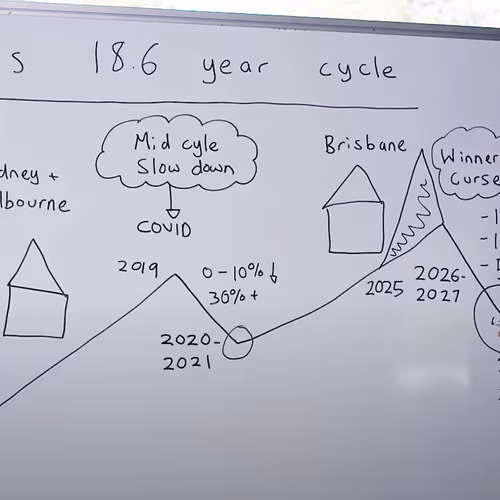 s 18.6 year cycle
Mid cyle
Slow down
COVID
dney +
lbourne
Brisbane
Winner
Curse
2019
0-10% ↓
36% +
2020-
2021
2025
2026-
2027